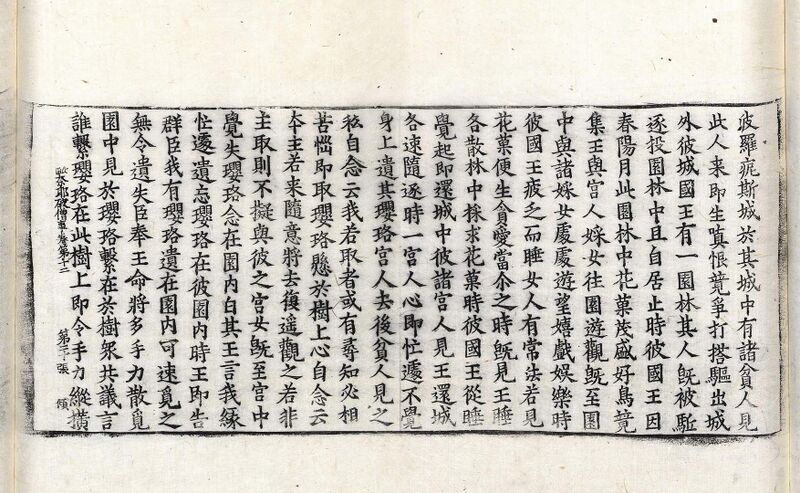 波羅痆斯城於其城中有諸貧人見
此人来即生嗔恨競爭打搭驅出城
外彼城國王有一園林其人旣被駈
逐投園林中且自居止時彼國王因
春陽月此園林中花菓茂盛好鳥競
集王與宮人婇女往園遊觀旣至園
中與諸婇女處處遊望嬉戲娛樂時
彼國王疲乏而睡女人有常法若見
花菓便生貪愛當尒之時旣見王睡
各散林中採求花菓時彼國王從睡
覺起即還城中彼諸宮人見王還城
各速隨逐時一宮人心即忙遽不覺
身上遺其瓔珞宮人去後貧人見之
私自念云我若取者或有尋知必相
苦惱即取瓔珞懸於樹上心自念云
夲主若来隨意將去復遥觀之若非
主取則不擬與彼之宮女旣至宮中
覺失瓔珞念在園內白其王言我緣
忙遽遺忘瓔珞在彼園內時王即告
群臣我有瓔珞遺在園內可速覓之
無令遺失臣奉王命將多手力散覓
園中見於瓔珞繫在於樹衆共議言
誰繫瓔珞在此樹上即令手力縱橫
破僧事卷第十二 第二十張